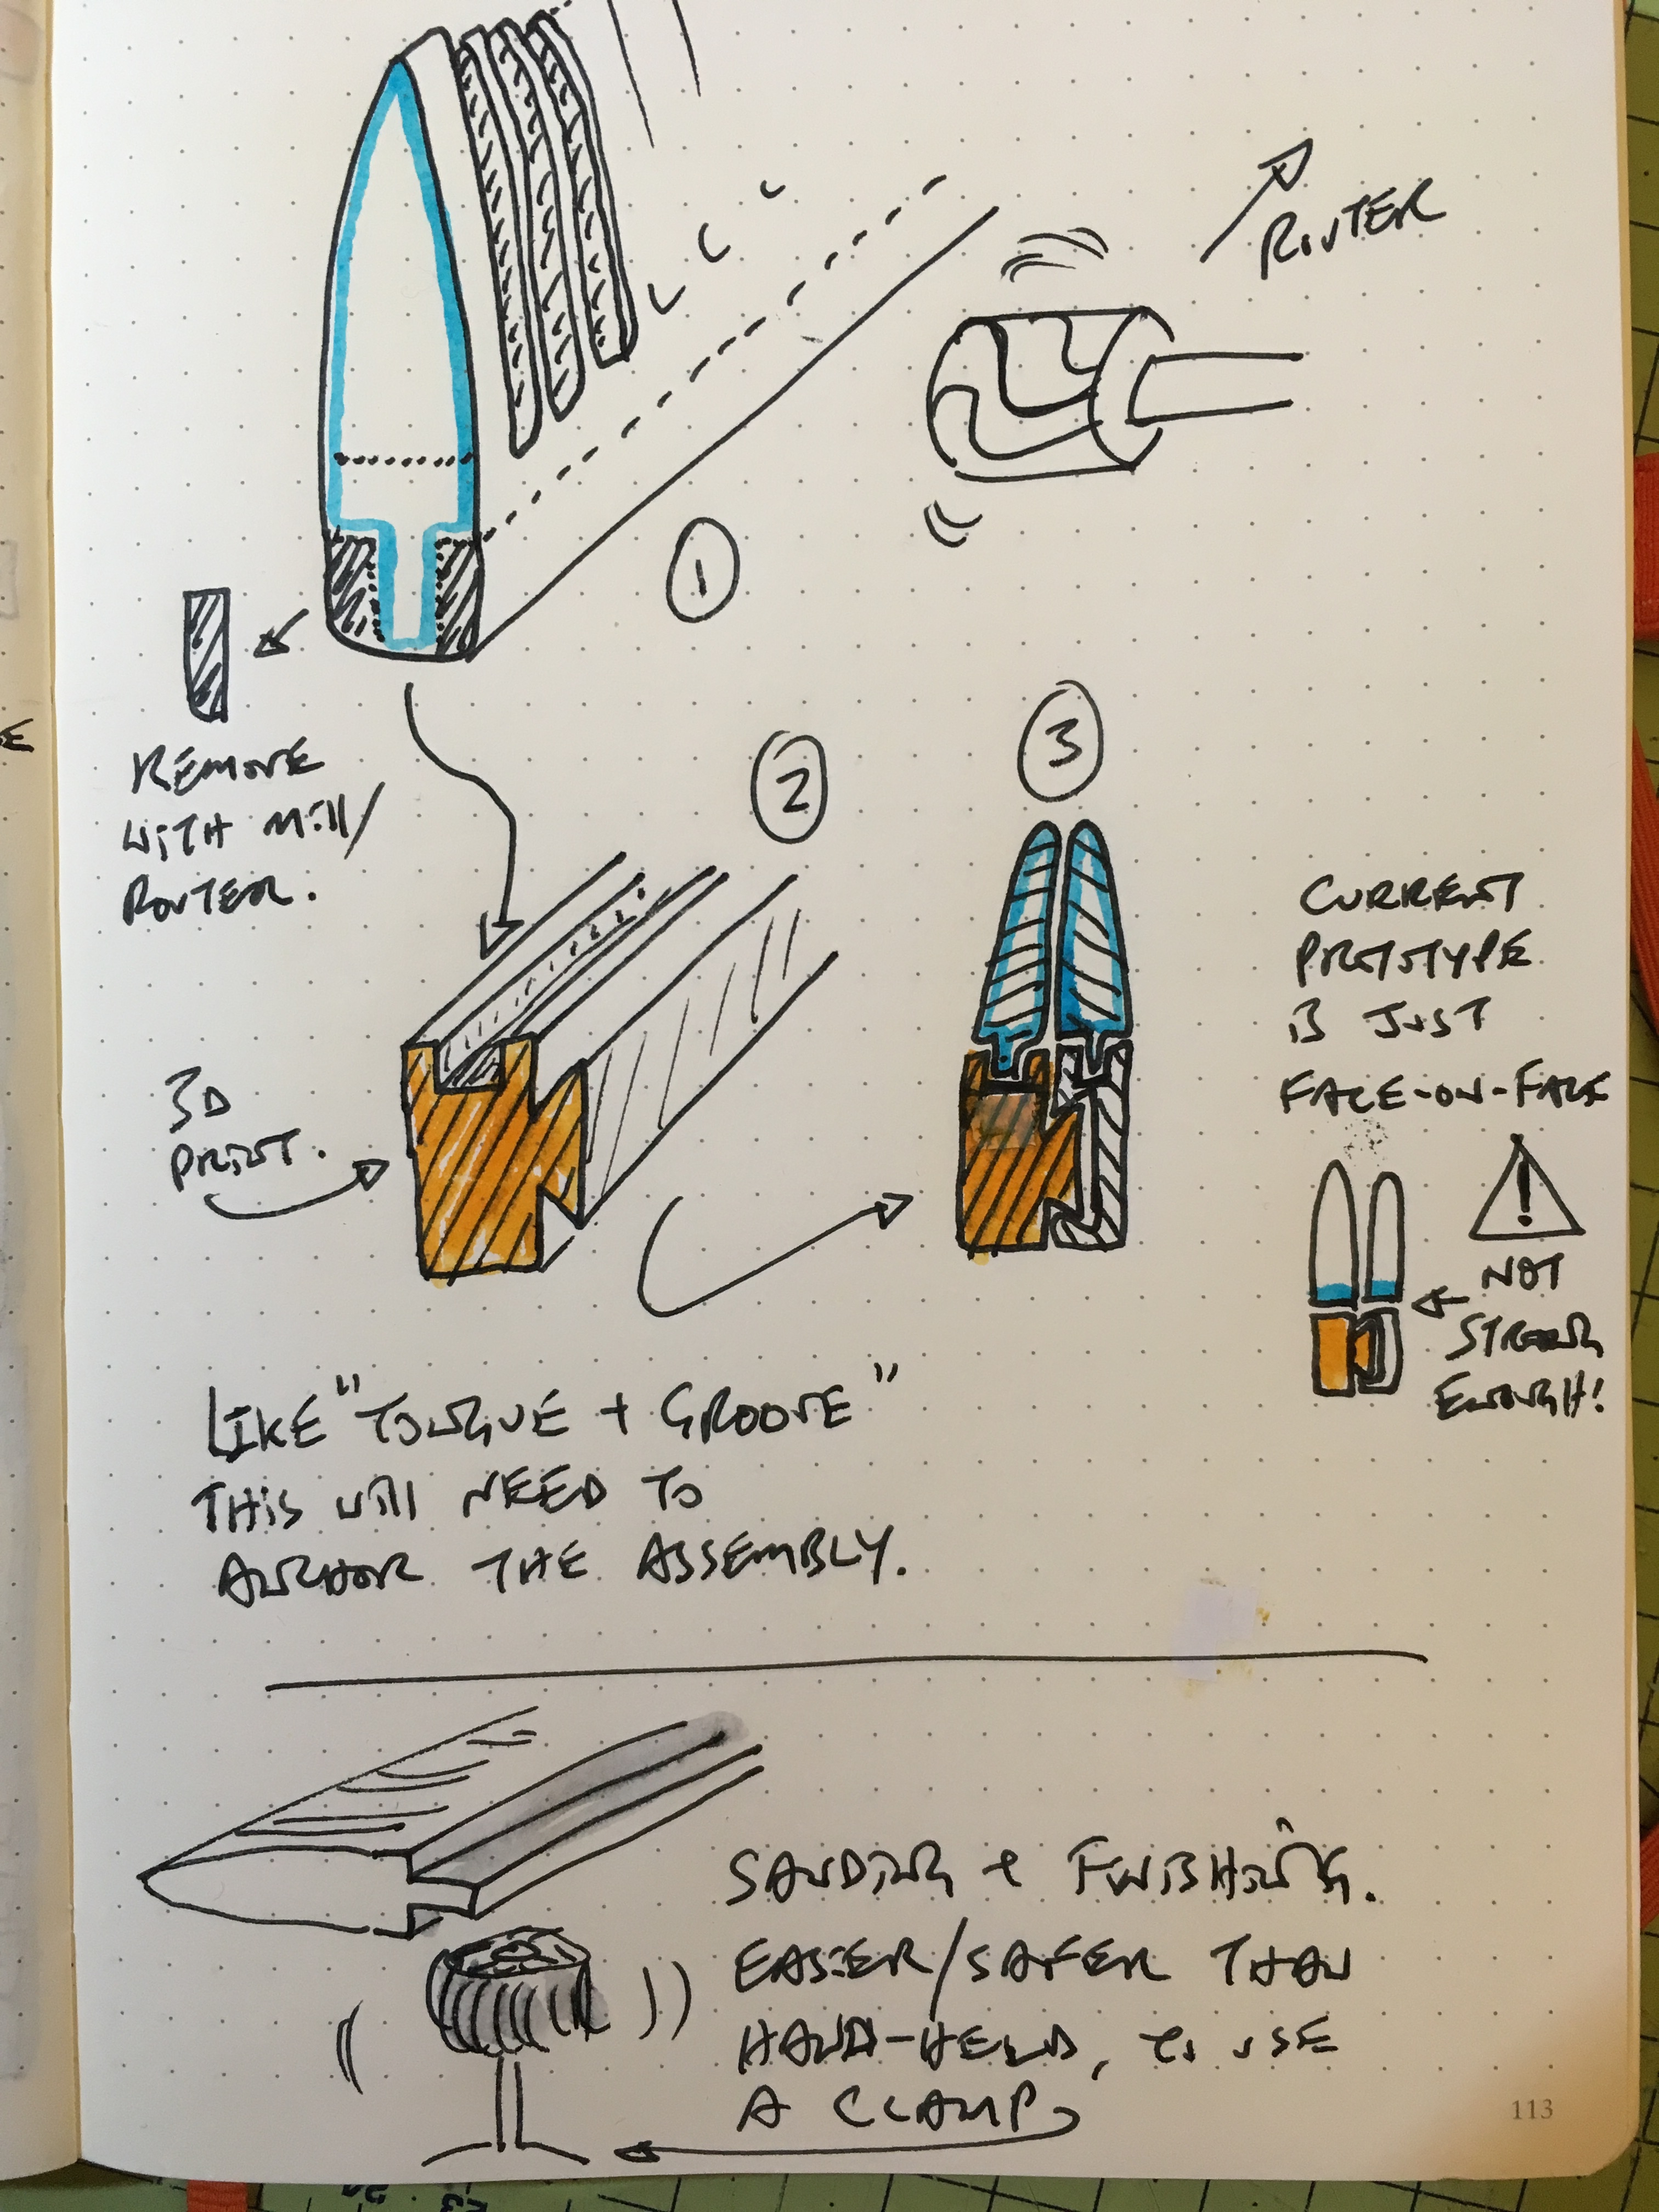 ROUTER
1
REMOVE
WITH MILL/
ROUTER.
2
3
CURRENT
PROTOTYPE
IS JUST
FACE-ON-FACE
3D
PRINT.
!
NOT
STRONG
ENOUGH!
LIKE "TONGUE + GROOVE"
THIS WILL NEED TO
ANCHOR THE ASSEMBLY.
SANDING + FINISHING.
EASIER/SAFER THAN
HAND-HELD, TO USE
A CLAMP
113